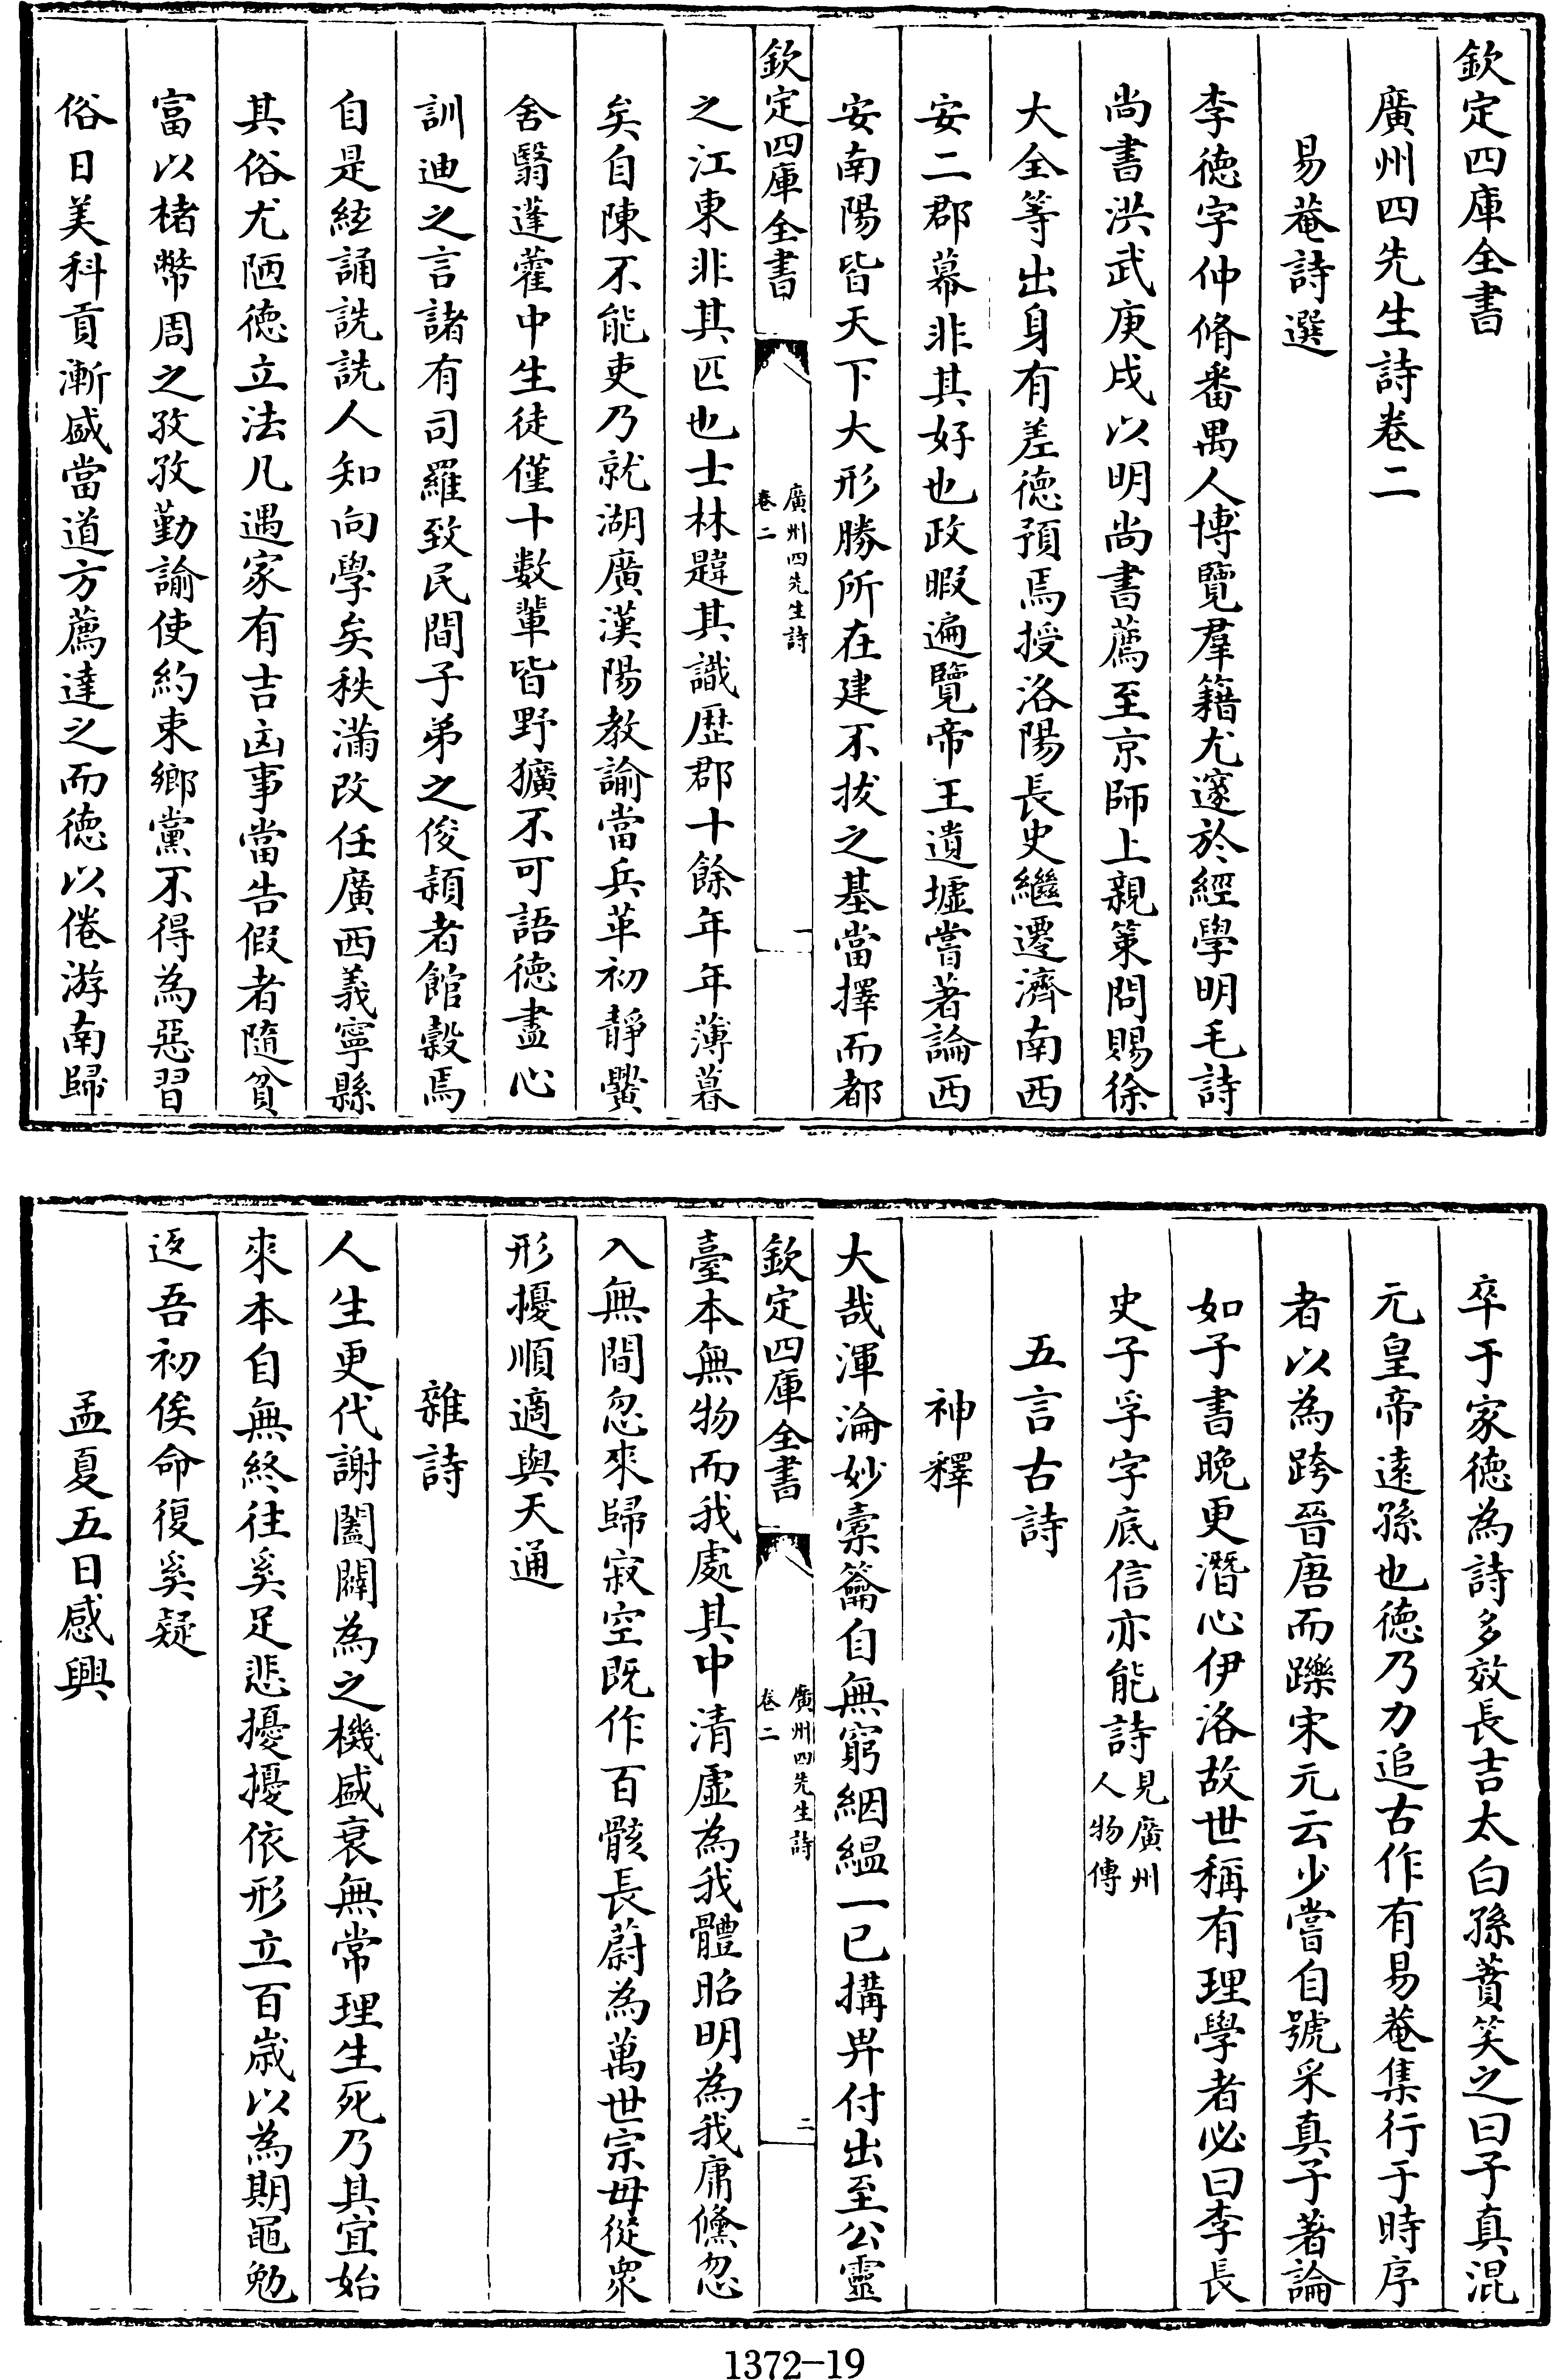 欽定四庫全書
廣州四先生詩卷二
易菴詩選
李德字仲脩番禺人博覽羣籍尤邃於經學明毛詩
尚書洪武庚戌以明尚書薦至京師上親策問賜徐
大全等出身有差德預焉授洛陽長史繼遷濟南西
安二郡幕非其好也政暇遍覽帝王遺墟嘗著論西
安南陽皆天下大形勝所在建不拔之基當擇而都
欽定四庫全書
廣州四先生詩
卷二
一
之江東非其匹也士林韙其識歷郡十餘年年薄暮
矣自陳不能吏乃就湖廣漢陽教諭當兵革初靜黌
舍翳蓬藋中生徒僅十數輩皆野獷不可語德盡心
訓迪之言諸有司羅致民間子弟之俊穎者館榖焉
自是絃誦詵詵人知向學矣秩滿改任廣西義寧縣
其俗尤陋德立法凡遇家有吉凶事當告假者隨貧
富以楮幣周之孜孜勤諭使約束鄉黨不得為惡習
俗日美科貢漸盛當道方薦達之而德以倦游南歸
卒于家德為詩多效長吉太白孫蕡笑之曰子真混
元皇帝遠孫也德乃力追古作有易菴集行于時序
者以為跨晉唐而躒宋元云少嘗自號采真子著論
如子書晚更潛心伊洛故世稱有理學者必曰李長
史子孚字底信亦能詩見廣州人物傳
五言古詩
神釋
大哉渾淪妙橐籥自無窮絪緼一已搆畀付出至公靈
欽定四庫全書
廣州四先生詩
卷二
二
臺本無物而我處其中清虛為我體昭明為我庸儵忽
入無間忽來歸寂空既作百骸長蔚為萬世宗毋從衆
形擾順適與天通
雜詩
人生更代謝闔闢為之機盛衰無常理生死乃其宜始
來本自無終往奚足悲擾擾依形立百歲以為期黽勉
返吾初俟命復奚疑
孟夏五日感興
1372-19